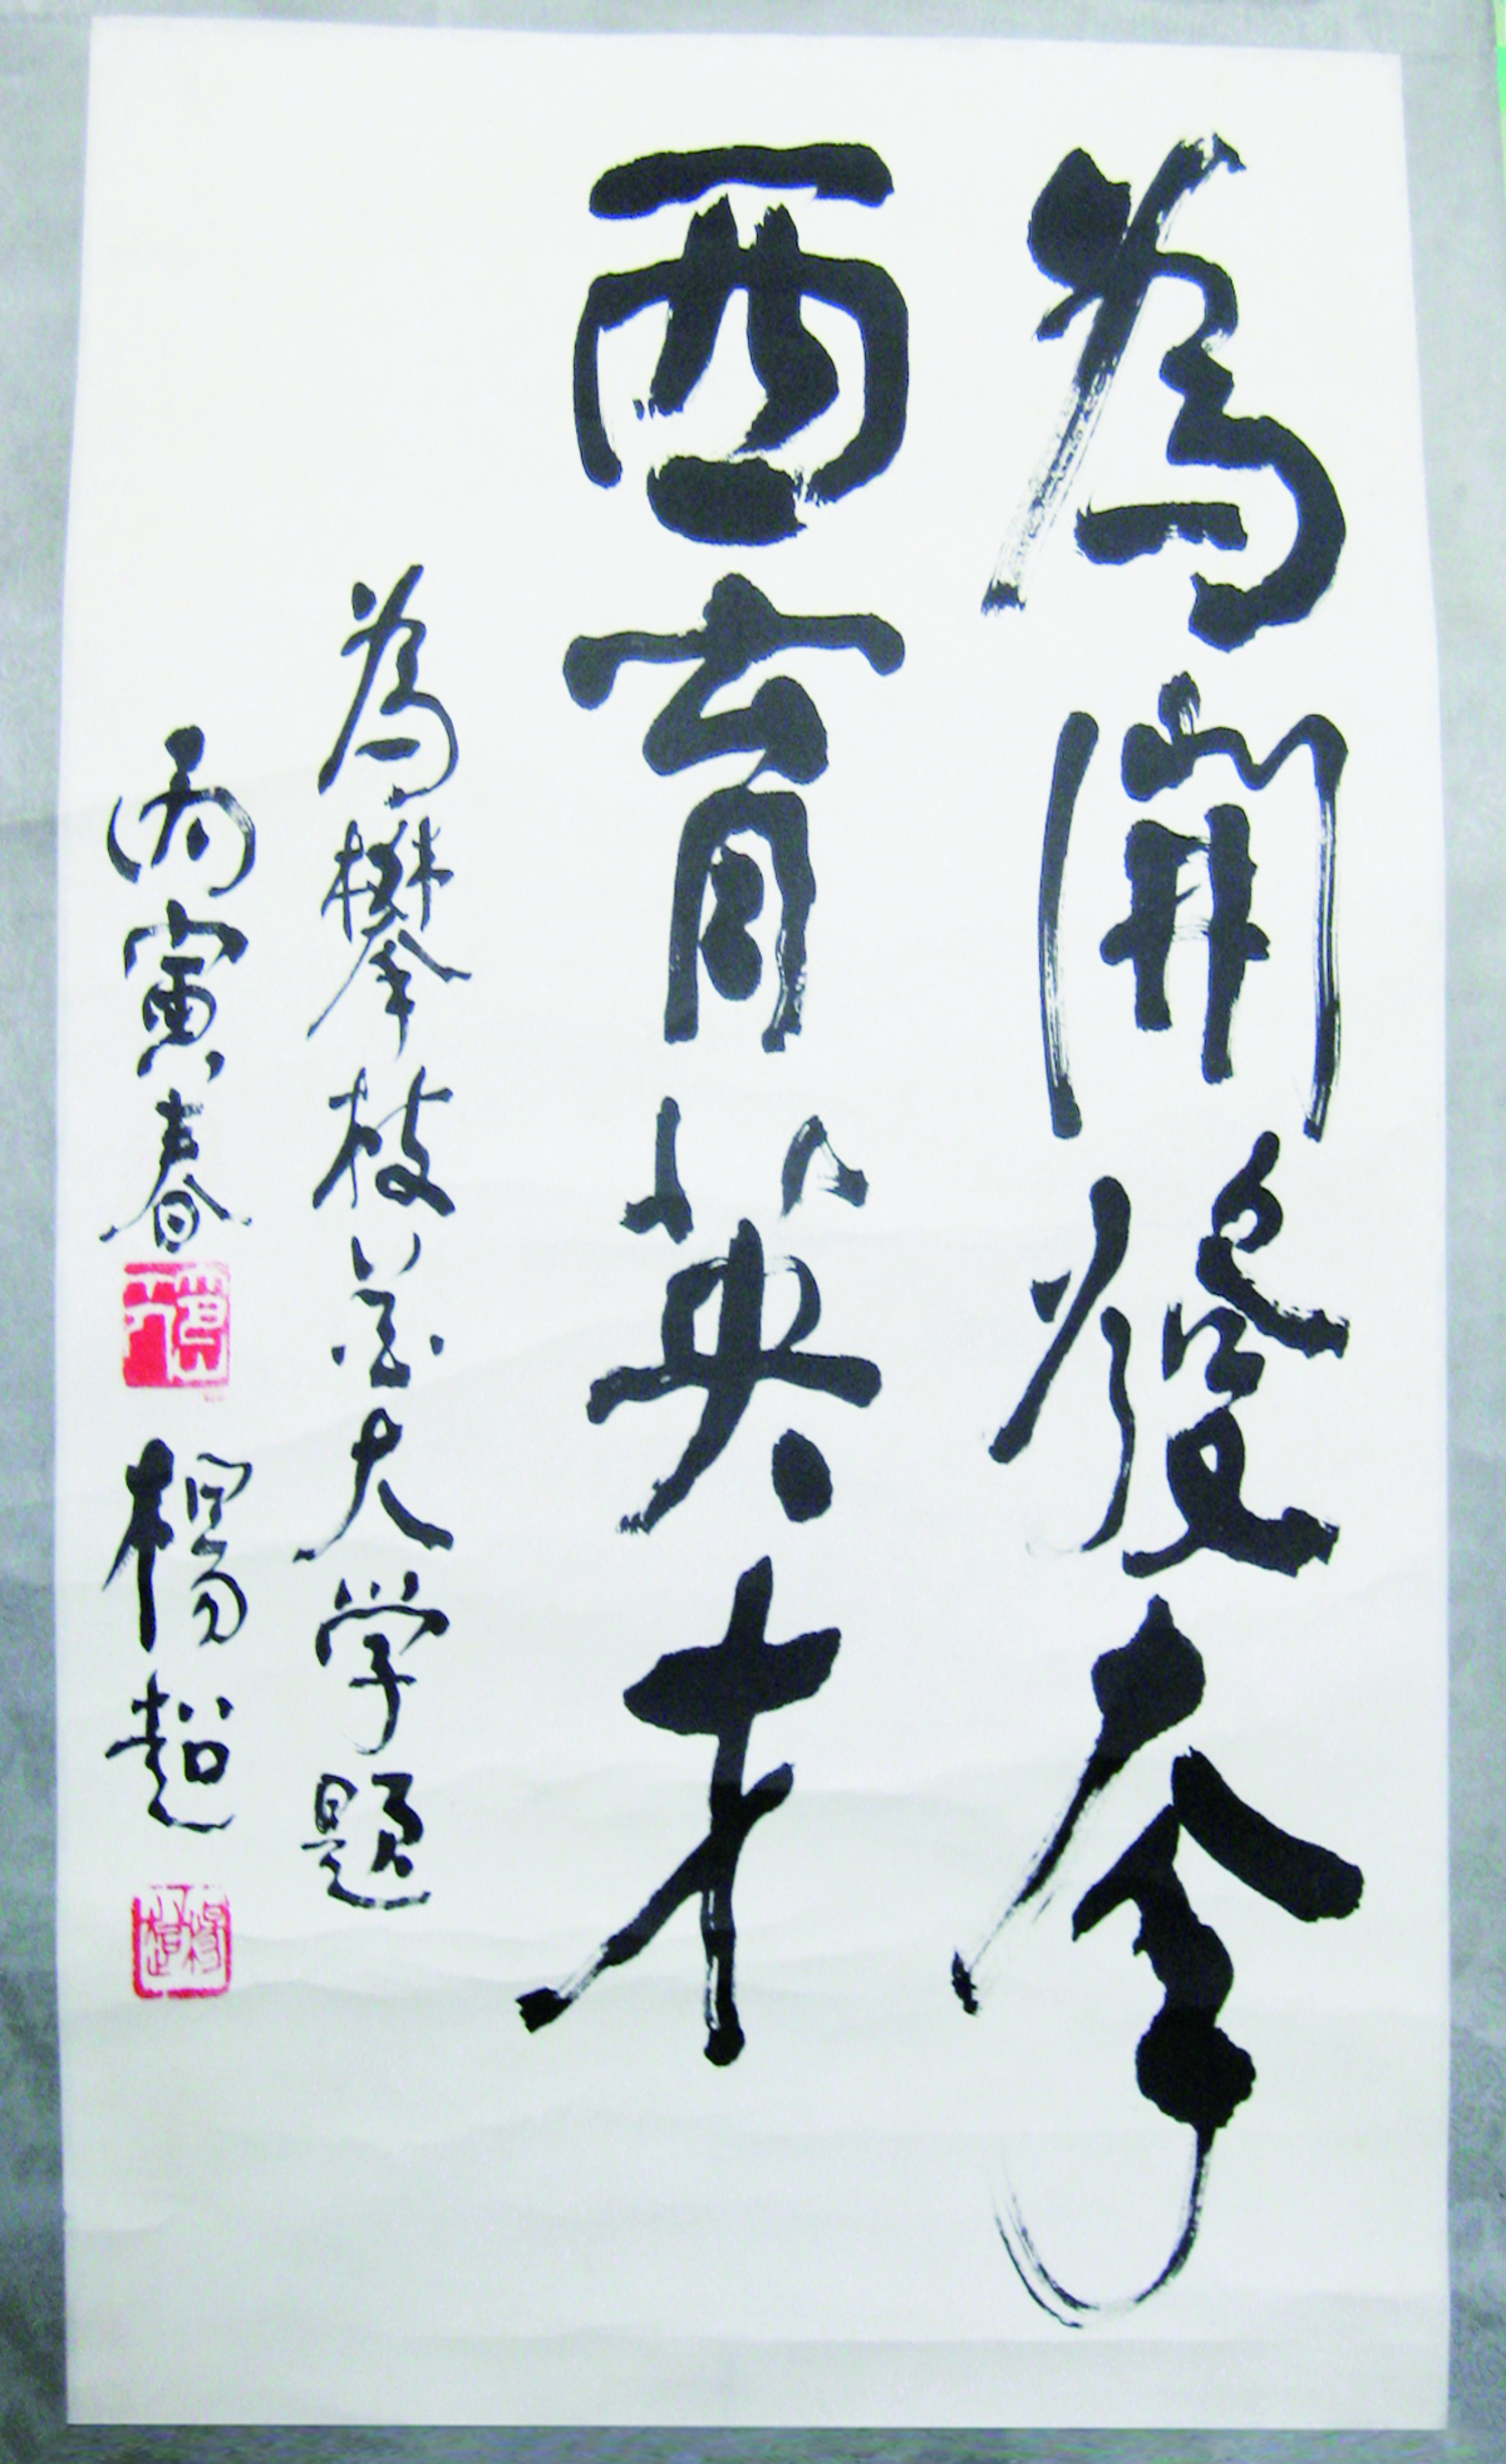 為開發攀
西育英才
為攀枝花大学題
丙寅春
楊超
楊超